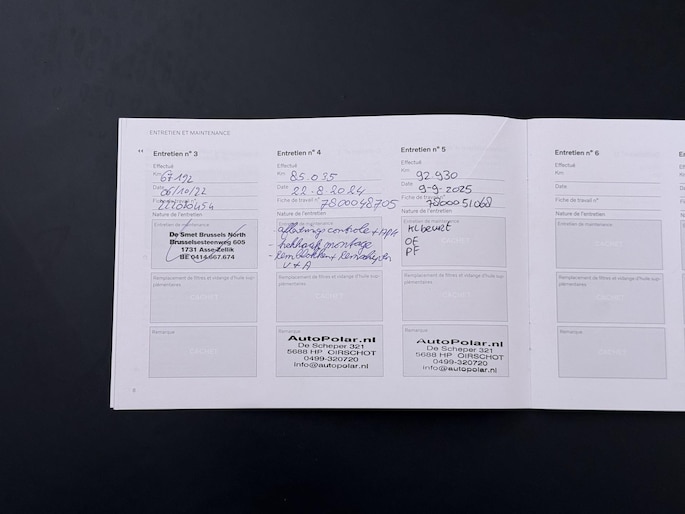 ENTRETIEN ET MAINTENANCE
Entretien n° 3
Effectué
Km 67 192
Date 06/10/22
Fiche de travail n°
Nature de l'entretien
Entretien de maintenance
De Smet Brussels North
Brusselsesteenweg 605
1731 Asse-Zellik
BE 0414.667.674
Remplacement de filtres et vidange d'huile sup-
plémentaires
CACHET
Remarque
CACHET
6
Entretien n° 4
Effectué
Km 85.035
Date 22-8-2024
Fiche de travail n° 7800048705
Nature de l'entretien
Entretien de maintenance
- afleverings controle + APK
- trekhaak montage
- Remblokken + Remschijven
V + A
Remplacement de filtres et vidange d'huile sup-
plémentaires
CACHET
Remarque
AutoPolar.nl
De Scheper 321
5688 HP OIRSCHOT
0499-320720
info@autopolar.nl
Entretien n° 5
Effectué
Km 92 930
Date 9-9-2025
Fiche de travail n° 7800051068
Nature de l'entretien
Entretien de maintenance
Kl beurt
OF
PF
Remplacement de filtres et vidange d'huile sup-
plémentaires
CACHET
Remarque
AutoPolar.nl
De Scheper 321
5688 HP OIRSCHOT
0499-320720
info@autopolar.nl
Entretien n° 6
Effectué
Km
Date
Fiche de travail n°
Nature de l'entretien
Entretien de maintenance
CACHET
Remplacement de filtres et vidange d'huile sup-
plémentaires
CACHET
Remarque
CACHET
Entretien
Effectué
Km
Date
Fiche de travail
Nature de l'ent
Entretien de m
Remplacement
plémentaires
Remarque